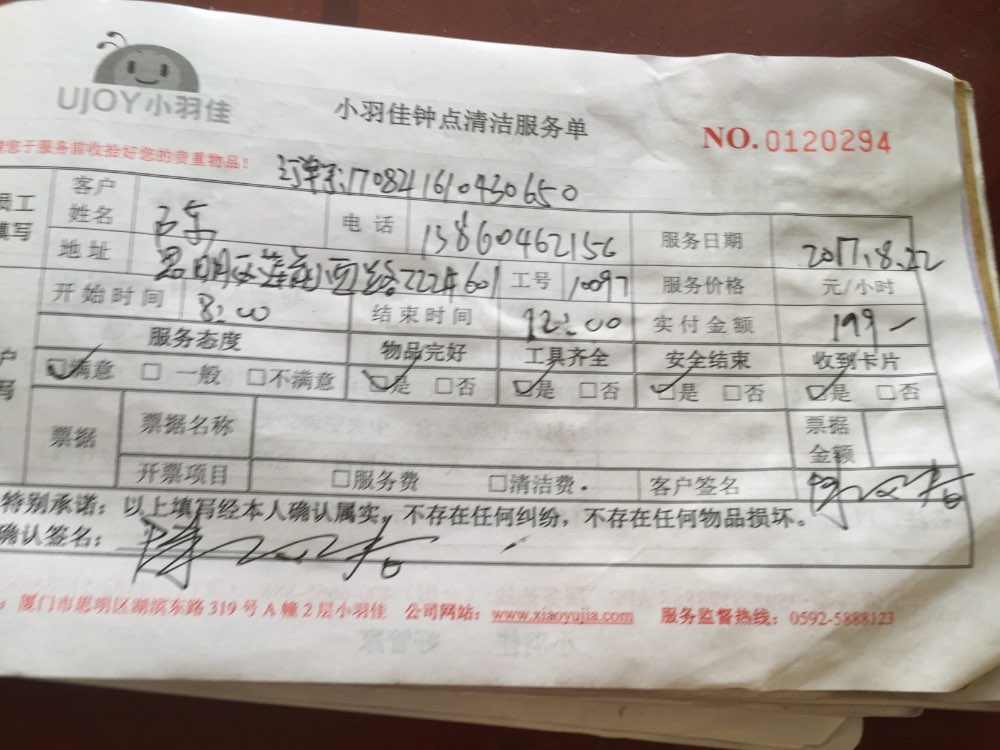 UJOY小羽佳
小羽佳钟点清洁服务单
NO.0120294
您于服务前收拾好您的贵重物品！
订单号:170821610430650
员工填写
客户姓名
电话 13860462156
服务日期 2017.8.22
地址 思明区莲花
工号 10097
服务价格 元/小时
开始时间 8:00
结束时间 12:00
实付金额 199-
服务态度 物品完好 工具齐全 安全结束 收到卡片
☑满意 □一般 □不满意 ☑是 □否 ☑是 □否 ☑是 □否 ☑是 □否
票据 票据名称 票据金额
开票项目 □服务费 □清洁费 客户签名
特别承诺：以上填写经本人确认属实，不存在任何纠纷，不存在任何物品损坏。
确认签名：
厦门市思明区湖滨东路319号A幢2层小羽佳 公司网站：www.xiaoyujia.com 服务监督热线：0592-5888123